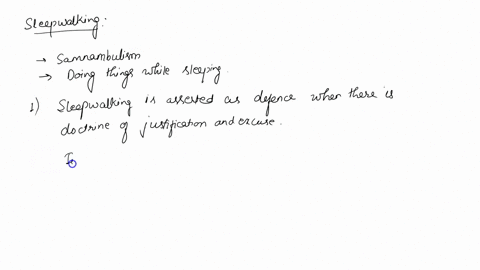 Sleepwalking:
→ Samnambulism
→ Doing things while sleeping.
1) Sleepwalking is asserted as defence when there is
doctrine of justification and excuse.
I